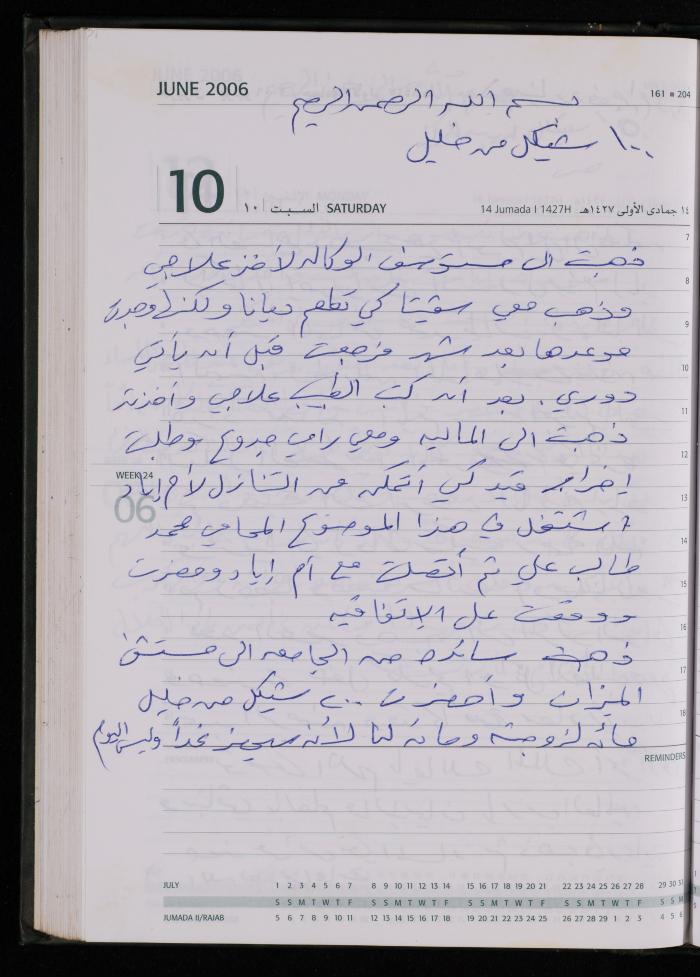 JUNE 2006
161 ■ 204
بسم الله الرحمن الرحيم
١٠٠ شيكل من خليل
10 ١٠ السبت SATURDAY
14 Jumada I 1427H ١٤ جمادى الأولى ١٤٢٧هـ
7
ذهبت الى مستوصف الوكاله لأخذ علاجي
8
وذهب معي سقيتا كي تطعم ديانا ولكنها وجدت
9
موعدها بعد شهر فرجعت قبل أن يأتي
10
دوري. بعد أن كتب الطبيب علاجي وأخذته
11
ذهبت الى الماليه ومعي رامي جدوع وطلبت
12
WEEK 24
06
إخراج قيد كي أتمكن من التنازل لأم إياد
13
اشتغل في هذا الموضوع المحامي محمد
14
طالب علي ثم أتصلت مع أم إياد وحضرت
15
ووقعت على الإتفاقيه
16
ذهبت سائده من الجامعه الى مستشفى
17
الميزان وأحضرت ٢٠٠ شيكل من خليل
18
مائه لزوجته ومائه لنا لأنه سيجيز غداً وليس اليوم
REMINDERS
JULY 1 2 3 4 5 6 7 8 9 10 11 12 13 14 15 16 17 18 19 20 21 22 23 24 25 26 27 28 29 30 31
S S M T W T F S S M T W T F S S M T W T F S S M T W T F S S M
JUMADA II/RAJAB 5 6 7 8 9 10 11 12 13 14 15 16 17 18 19 20 21 22 23 24 25 26 27 28 29 1 2 3 4 5 6